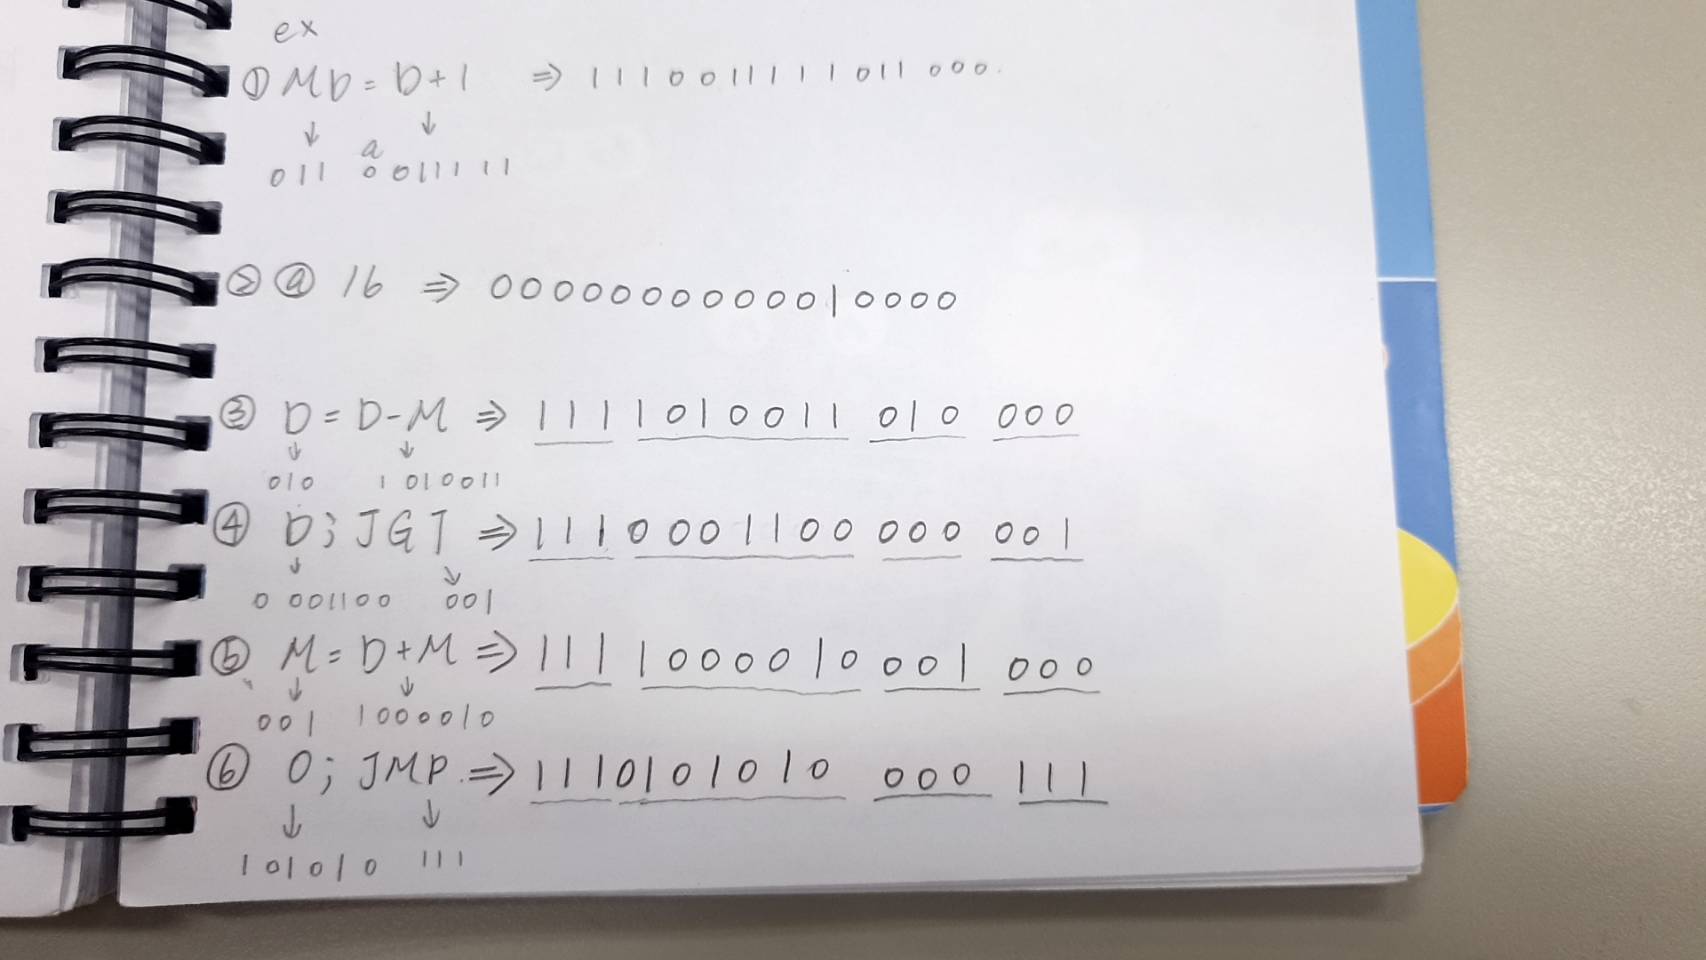 ex
① MD = D+1 ⇒ 1110011111011000.
↓ ↓
a
011 0011111
② @ 16 ⇒ 0000000000010000
③ D = D-M ⇒ 111 1010011 010 000
↓ ↓
010 1 010011
④ D; JGT ⇒ 111 0001100 000 001
↓ ↘
0 001100 001
⑤ M = D+M ⇒ 111 1000010 001 000
↓ ↓
001 1000010
⑥ 0; JMP. ⇒ 1110101010 000 111
↓ ↓
101010 111